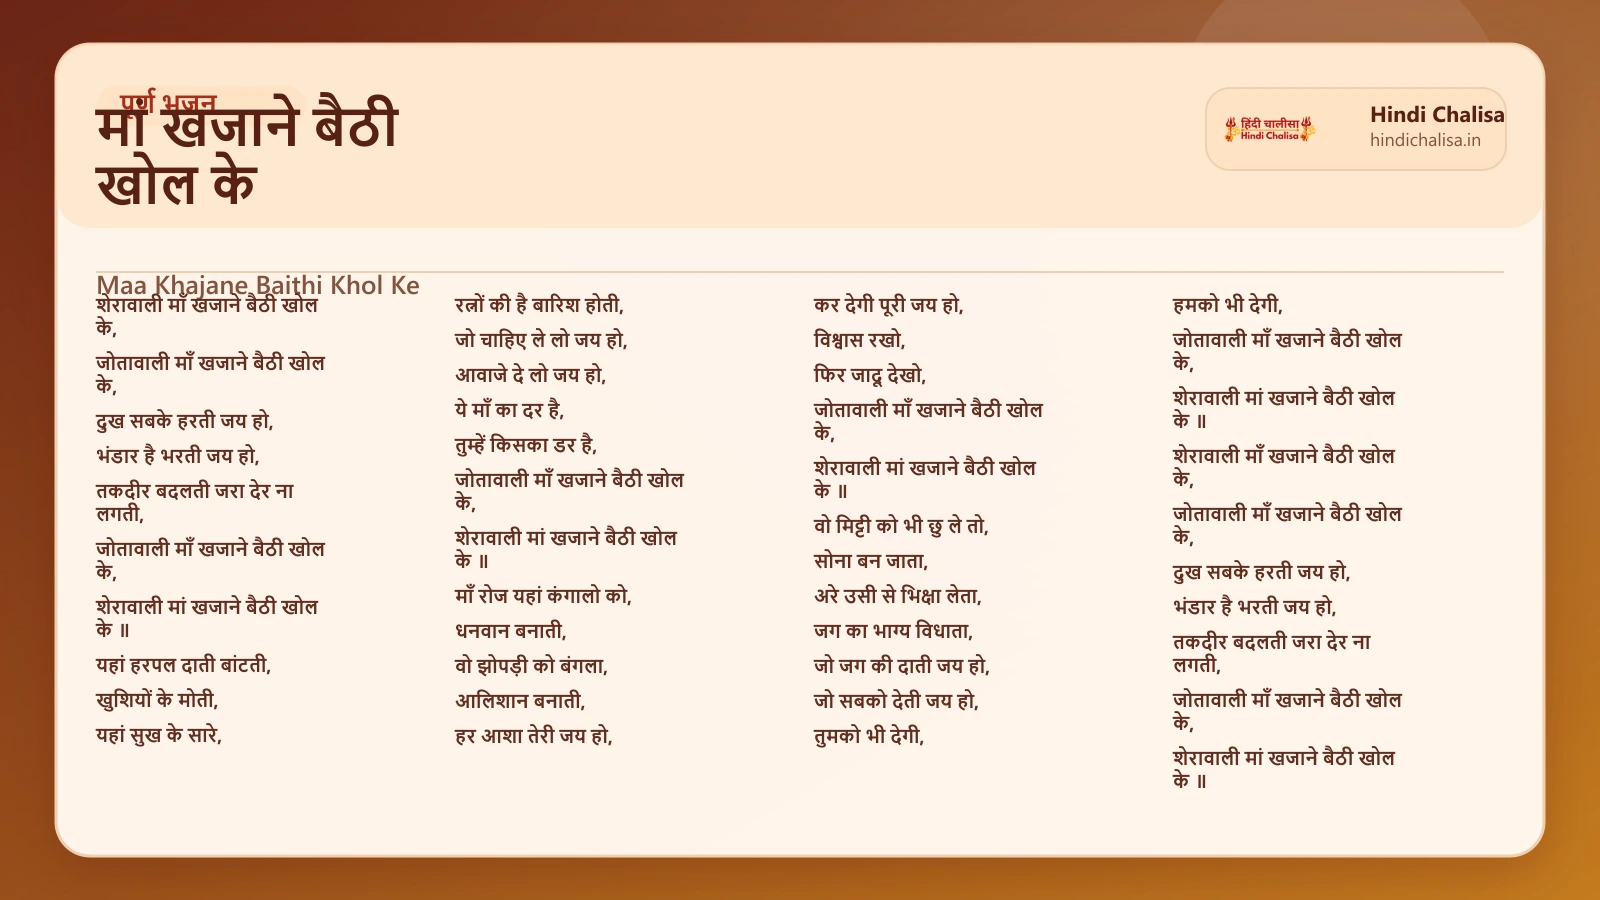 पूर्ण भजन
मां खजाने बैठी
खोल के
हिंदी चालीसा
Hindi Chalisa
Hindi Chalisa
hindichalisa.in
Maa Khajane Baithi Khol Ke
शेरावाली माँ खजाने बैठी खोल
के,
जोतावाली माँ खजाने बैठी खोल
के,
दुख सबके हरती जय हो,
भंडार है भरती जय हो,
तकदीर बदलती जरा देर ना
लगती,
जोतावाली माँ खजाने बैठी खोल
के,
शेरावाली मां खजाने बैठी खोल
के ॥
यहां हरपल दाती बांटती,
खुशियों के मोती,
यहां सुख के सारे,
रत्नों की है बारिश होती,
जो चाहिए ले लो जय हो,
आवाजे दे लो जय हो,
ये माँ का दर है,
तुम्हें किसका डर है,
जोतावाली माँ खजाने बैठी खोल
के,
शेरावाली मां खजाने बैठी खोल
के ॥
माँ रोज यहां कंगालो को,
धनवान बनाती,
वो झोपड़ी को बंगला,
आलिशान बनाती,
हर आशा तेरी जय हो,
कर देगी पूरी जय हो,
विश्वास रखो,
फिर जादू देखो,
जोतावाली माँ खजाने बैठी खोल
के,
शेरावाली मां खजाने बैठी खोल
के ॥
वो मिट्टी को भी छु ले तो,
सोना बन जाता,
अरे उसी से भिक्षा लेता,
जग का भाग्य विधाता,
जो जग की दाती जय हो,
जो सबको देती जय हो,
तुमको भी देगी,
हमको भी देगी,
जोतावाली माँ खजाने बैठी खोल
के,
शेरावाली मां खजाने बैठी खोल
के ॥
शेरावाली माँ खजाने बैठी खोल
के,
जोतावाली माँ खजाने बैठी खोल
के,
दुख सबके हरती जय हो,
भंडार है भरती जय हो,
तकदीर बदलती जरा देर ना
लगती,
जोतावाली माँ खजाने बैठी खोल
के,
शेरावाली मां खजाने बैठी खोल
के ॥